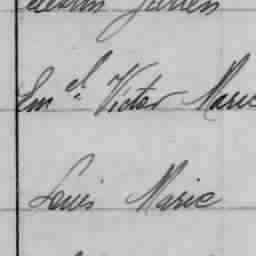 Julien
Em el. Victor Marie
Louis Marie